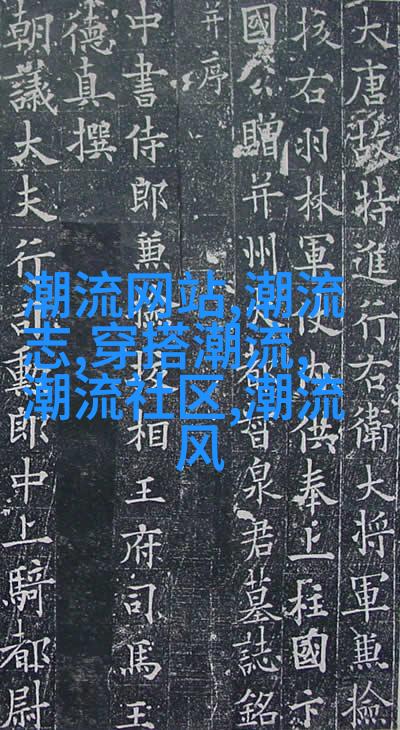 大唐故特進行右衛大將軍兼檢
校右羽林軍仗內供奉上柱國卞
國公贈并州大都督泉君墓誌銘
并序
中書侍郎兼檢校相王府司馬王
德真撰
朝議大夫行司勳郎中上騎都尉
潮流网站,潮流
志,穿搭潮流,
潮流社区,潮流
风